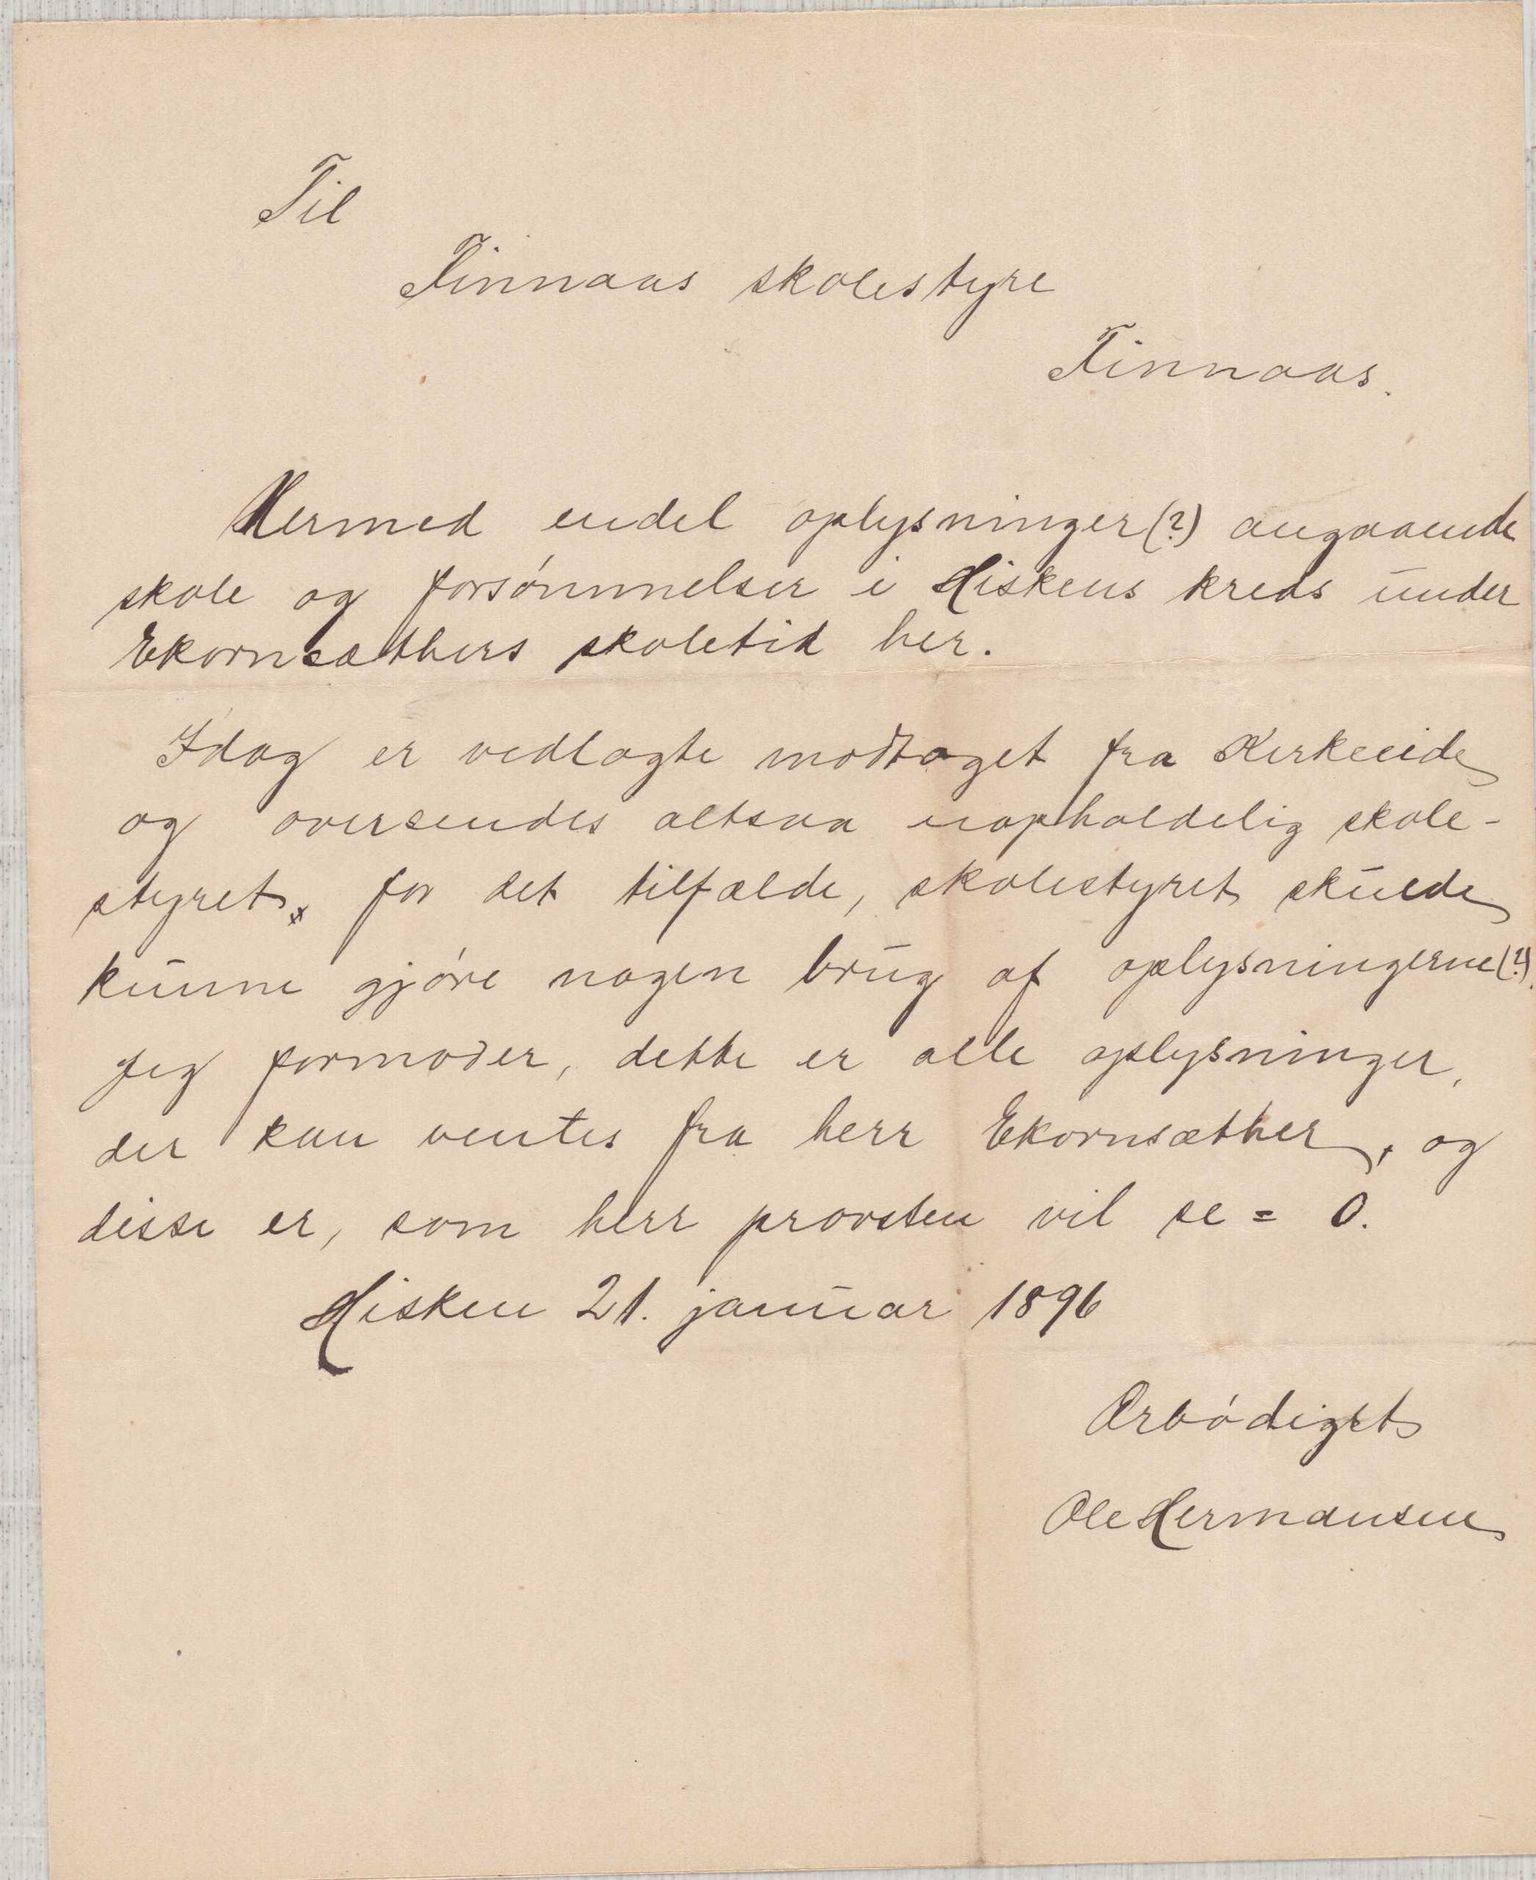 Til
Finnaas skolestyre
Finnaas.
Hermed endel oplysninger(?) angaaende
skole og forsømmelser i Hiskens kreds under
Ekornsæthers skoletid her.
Idag er vedlagte modtaget fra Kirkeeide
og oversendes altsaa uopholdelig skole-
styret, for det tilfælde, skolestyret skulde
kunne gjøre nogen brug af oplysningerne(?).
Jeg formoder, dette er alle oplysninger,
der kan ventes fra herr Ekornsæther, og
disse er, som herr provsten vil se = 0.
Hisken 21. januar 1896
Ærbødigst
Ole Hermansen